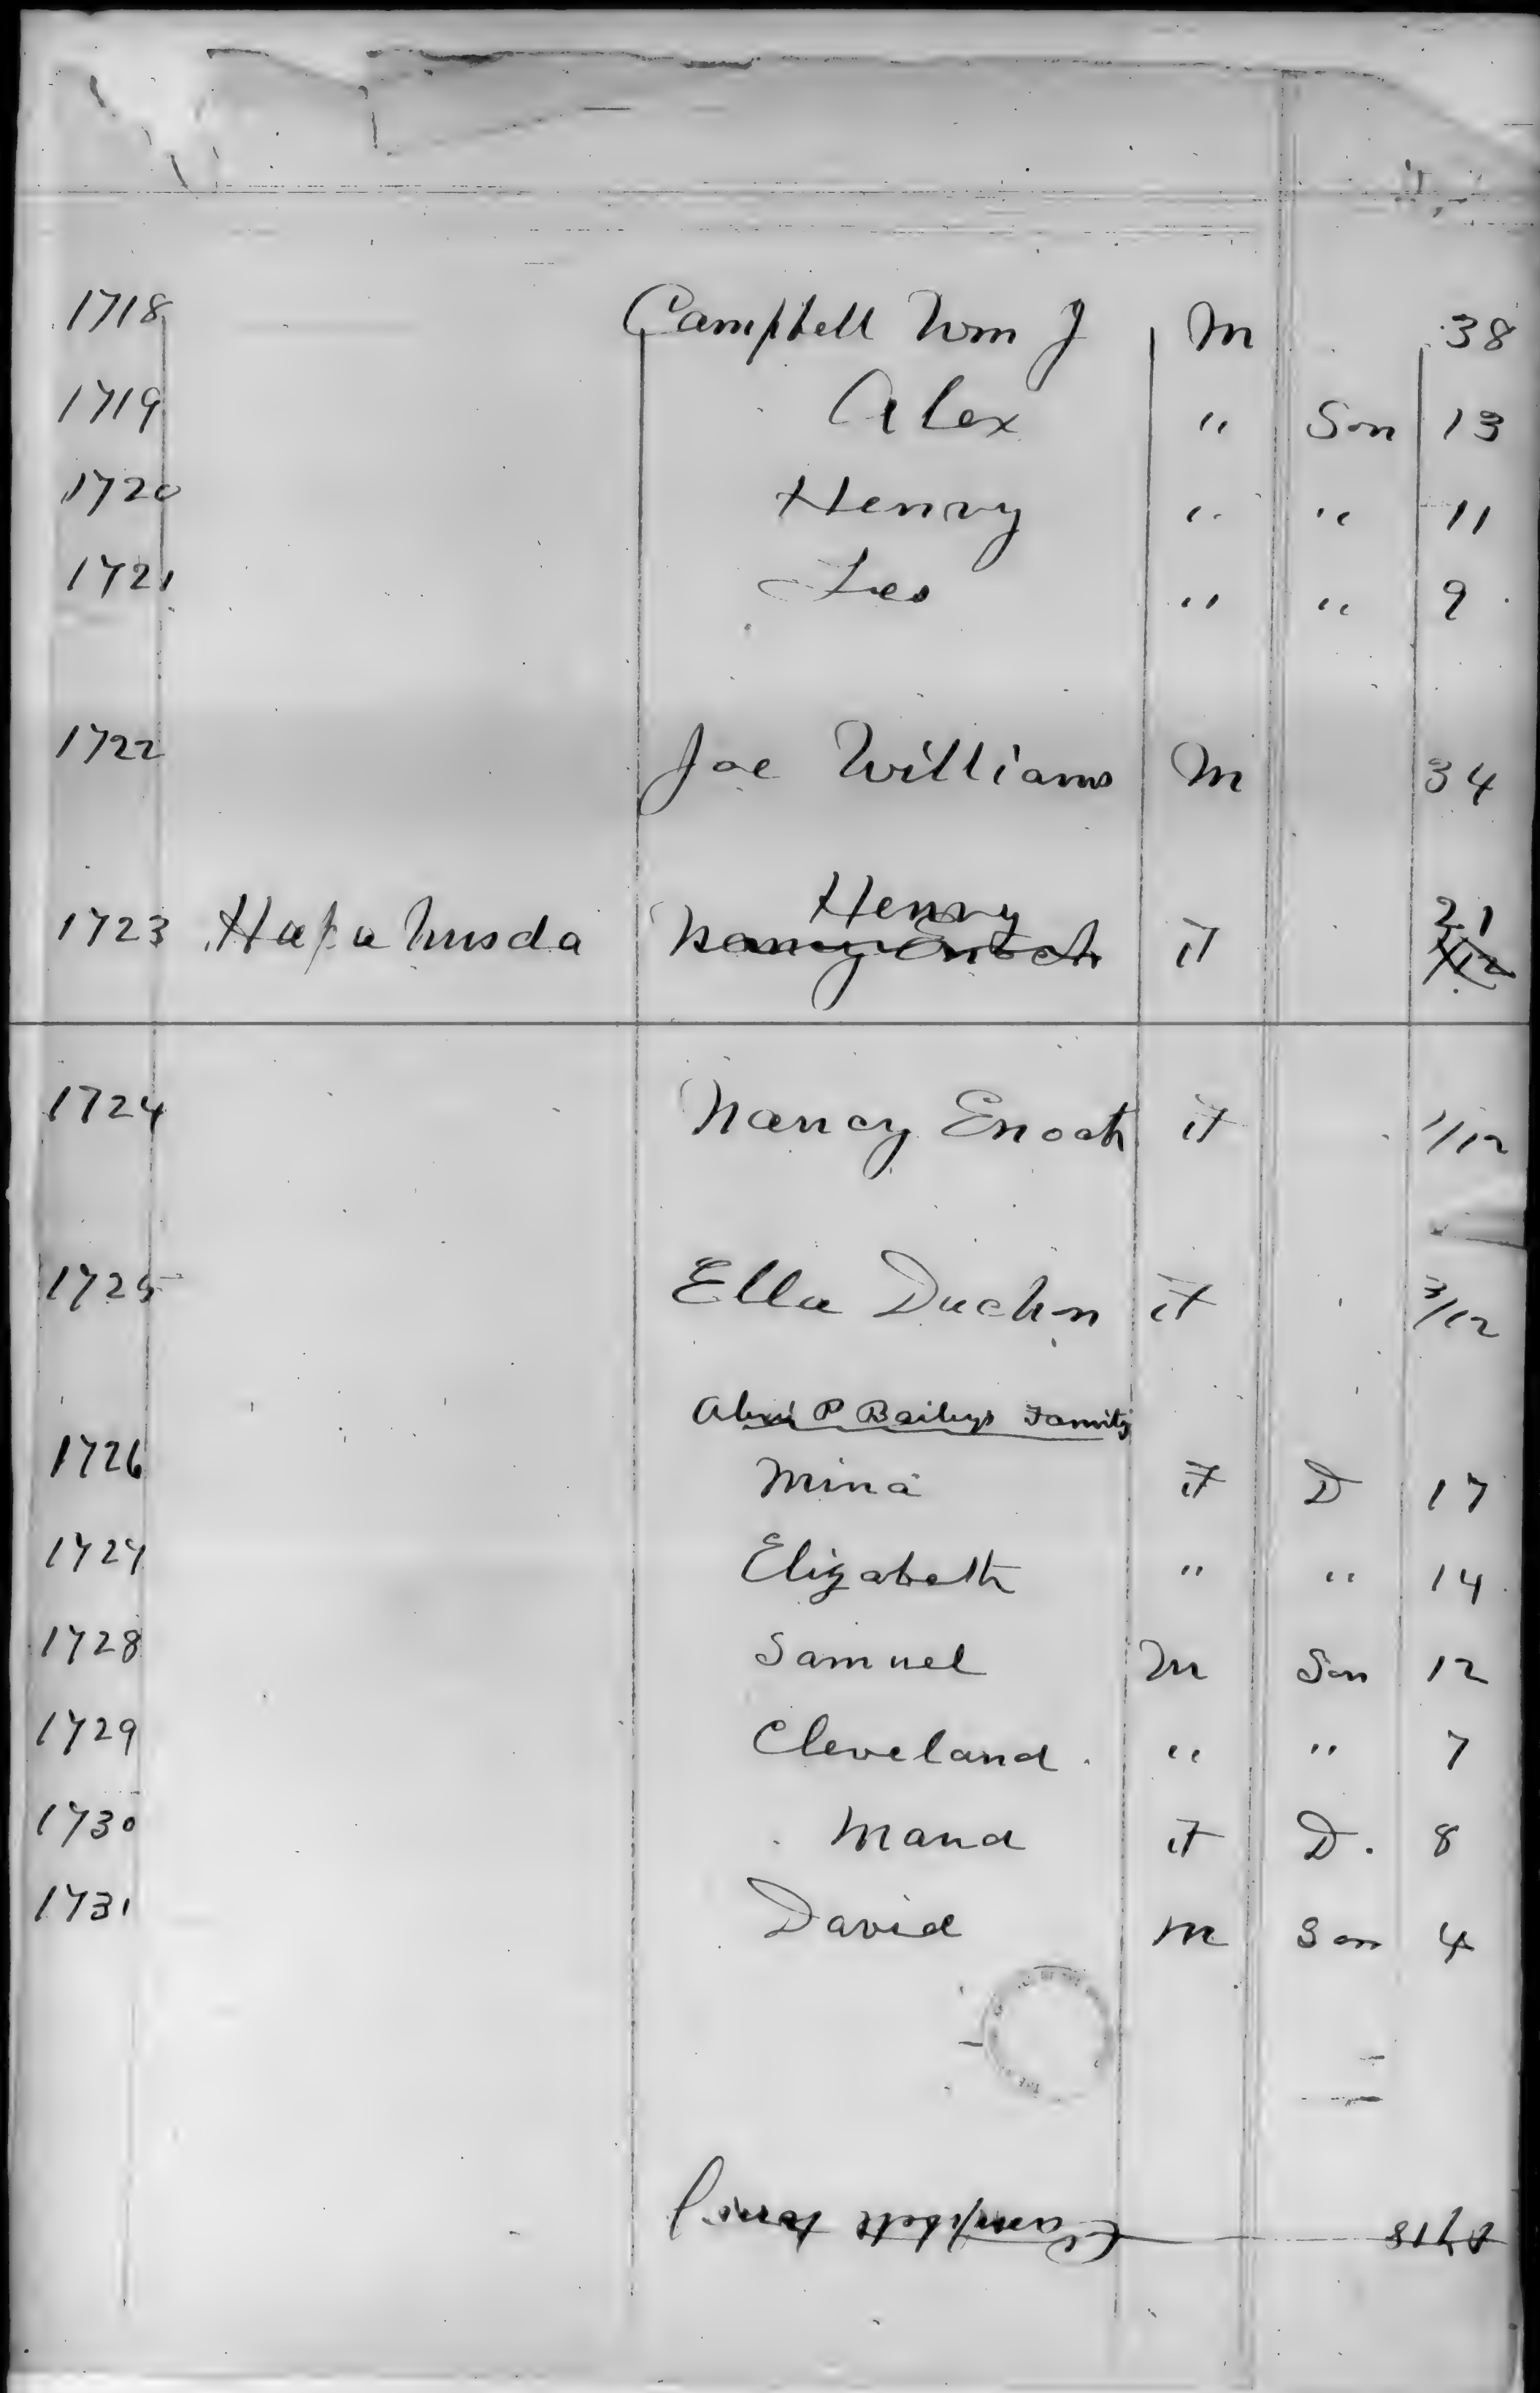 1718 Campbell Wm J M 38
1719 Alex " Son 13
1720 Henry " " 11
1721 Leo " " 9
1722 Joe Williams M 34
Henry 21
1723 Nancy Enoch F 1/12
1724 Nancy Enoch F 1/12
1725 Ella Duchn F 3/12
P Baileys Family
1726 Mina F D 17
1727 Elizabeth " " 14
1728 Samuel M Son 12
1729 Cleveland " " 7
1730 Maud F D. 8
1731 David M Son 4
Campbell 1718